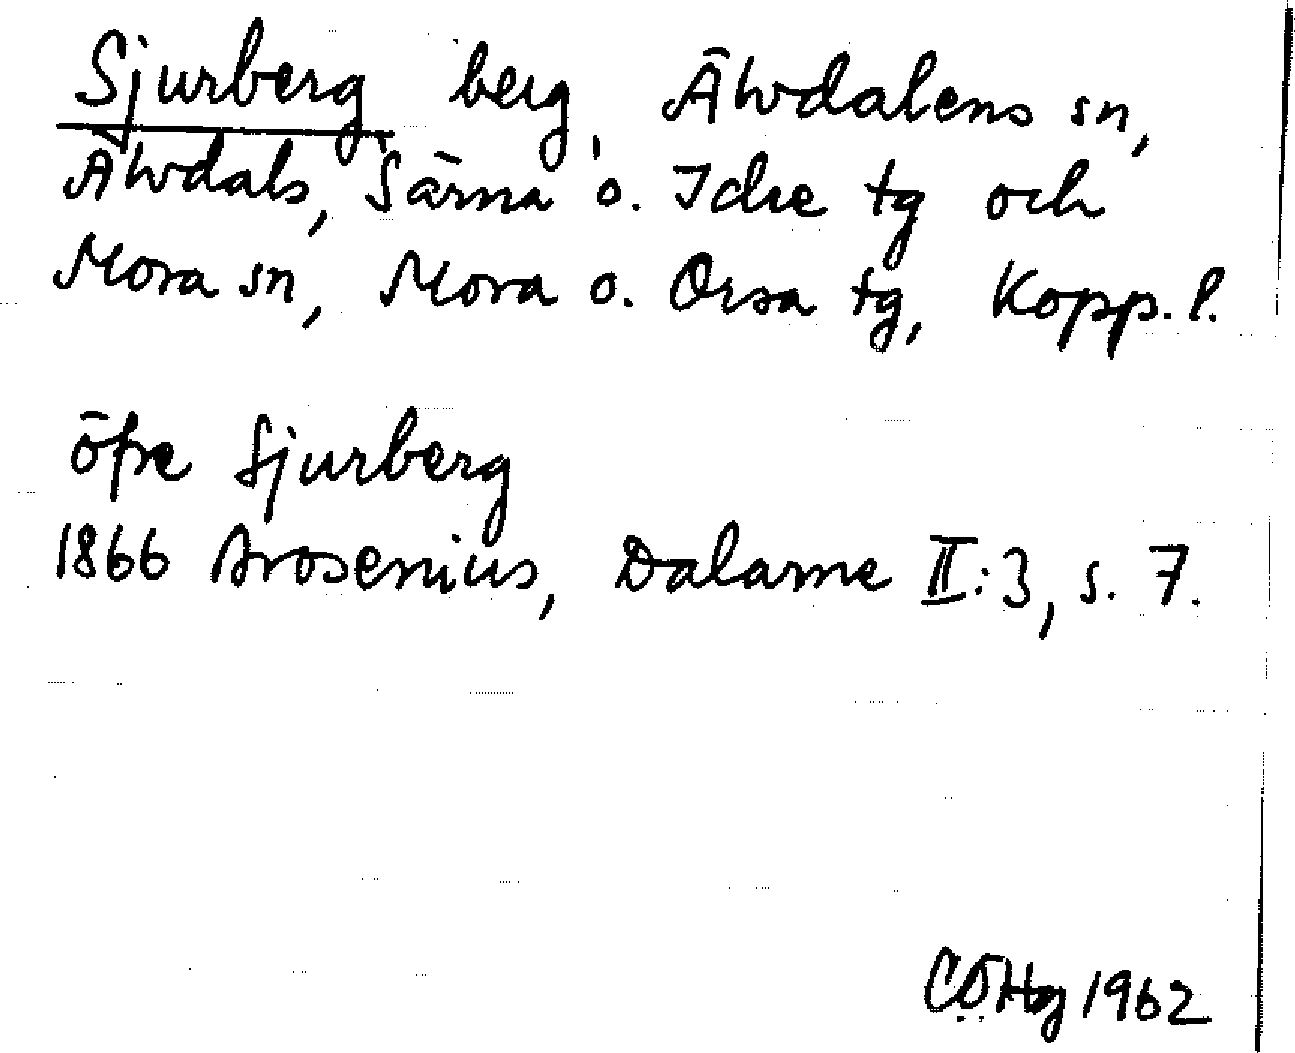 Sjurberg berg, Älvdalens sn,
Älvdals, Särna o. Idre tg och
Mora sn, Mora o. Orsa tg, Kopp. l.
öfre Sjurberg
1866 Arosenius, Dalarne II:3, s. 7.
CÖHbg 1962